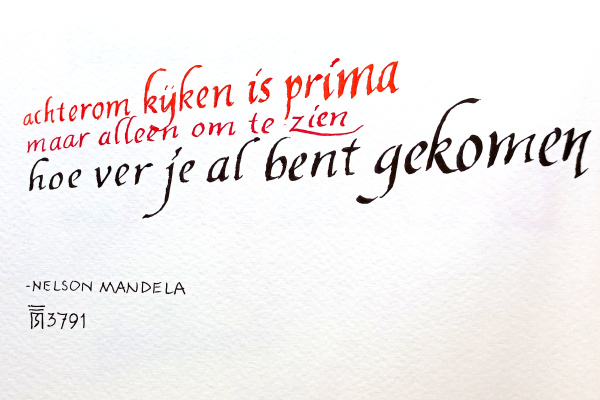 achterom kijken is prima
maar alleen om te zien
hoe ver je al bent gekomen
-NELSON MANDELA
3791